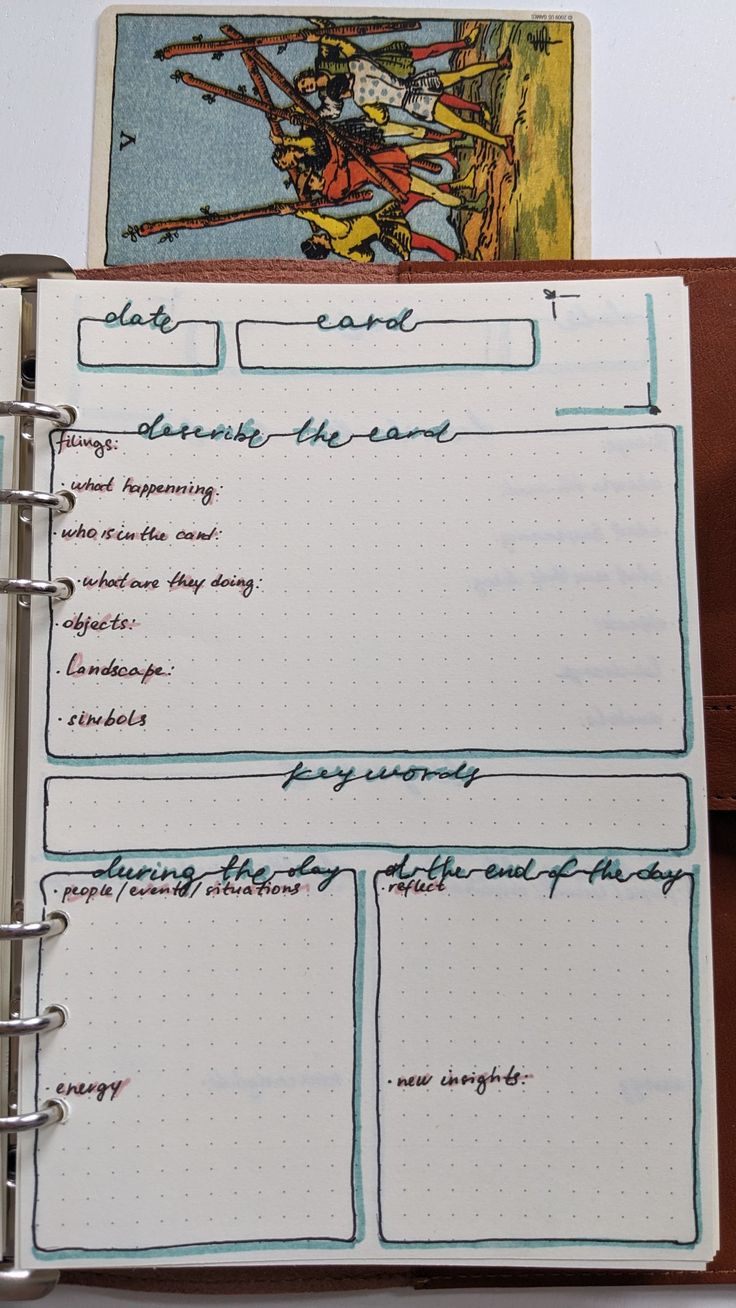 © 2009 US GAMES
V
date
card
describe the card
filings:
· what happenning:
· who is in the card:
· what are they doing:
· objects:
· Landscape:
· simbols
keywords
during the day
· people/events/situations
· energy
at the end of the day
· reflect
· new insights: